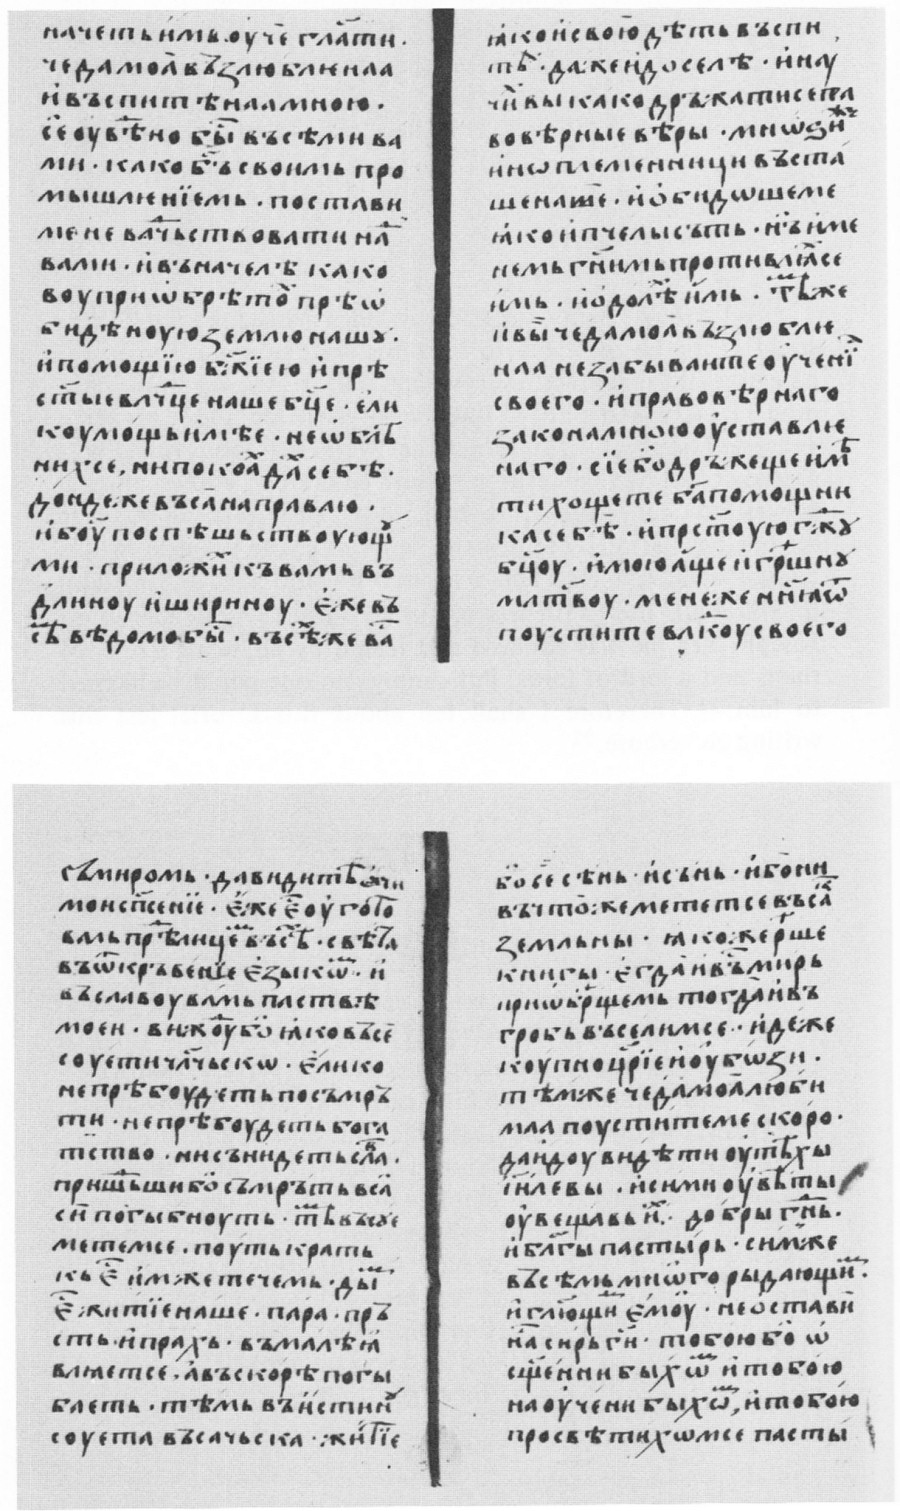 начеть имь оуче гл҃ати.
чеда моꙗ въꙁлюблюнаа
и въспитѣнаа мною.
се оувѣно бы въсѣми ва
ми. како бъ своимь про
мышлюнїемь. постави
ме не вачьствовати на
вами. и въначелѣ како
воу приѡбрѣтѡ прѣѡ
бидѣноую ꙁемлю нашꙋ.
и помощїю бж҃їею и прѣ
ст҃ые влч҃це наше бц҃е. ели
коу мощь имѣе. не ѡблѣ
нихсе, ни покоꙗ дахь себѣ.
дондеже въса направлю.
и боу поспѣшьствоующꙋ
ми. приложи къ вамь въ
длиноу и ширеноу. еже въ
сѣ вѣдомо бы. въсѣже ва
ꙗко и свою дѣть въспи
тѣ. даже и до селѣ. и наꙋ
чи вы како дръжатисе пра
вовѣрные вѣры. мнѡꙁи
иноплеменници въста
ше на ме. и обидѡше ме
ꙗко и пчелы сьть. нъ име
немь гн҃имь противлꙗсе
имь. и одолѣ имь. тѣже
и вы чеда моꙗ въꙁлюблю
наа не ꙁабываите оученї
своего. и правовѣрнаго
ꙁакона мною оуставлю
наго. сїе бо дръжеще имѣ
ти хощете ба помощни
ка себѣ. и прст҃оую гж҃ꙋ
бц҃оу. и мою аще и грѣшнꙋ
мл҃твоу. мене же нн҃ꙗ ѿ
поустите влк҃оу своего
съ миромь. давидитѣ очи
мои сп҃сенїе. еже е оуготѡ
валь прѣлицемь въсѣ. свѣть
въ ѿкръвенїе еꙁыкѡ. и
въ славоу вамь паствѣ
моеи. вижоу бо ꙗко въсе
соуети чл҃чьскѡ. елико
не прѣбоудеть по съмръ
ти. не прѣбоудеть бога
тство. ни сънидеть слава.
пришьши бо съмръть вса
си погыбноуть. тѣ въсꙋе
метемсе. поуть крать
къ е имже течемь. ды
е житїе наше. пара. пръ
сть и прахь. въмалѣ ꙗ
влꙗетсе. а въскорѣ погы
блеть. тѣмь въ истинꙋ
соуета въсачьска. житїе
бо се сѣнь. и сънь. ибо ни
въ чтоже метется въса
ꙁемльны. ꙗкоже рѣше
книгы. егда и въ мирь
приѡбрѣщемь тогда и въ
гробь въселимсе. идеже
коупно цр҃їе и оубѡꙁи.
тѣмже чеда моꙗ люби
маа поустите ме скоро.
да идоу видѣти оутѣхы
іи҃левы. и сими оувѣты
оувещавь их. добры гн҃ь.
и бл҃гы пастырь. симже
въсѣмь мнѡго рыдающи.
и гл҃ющи емоу. не остави
на сирь гн҃. тобою бо ѡ
сщ҃ени быхѡ и тобою
наоучени быхѡ, и тобою
просвѣтихѡмсе пасты